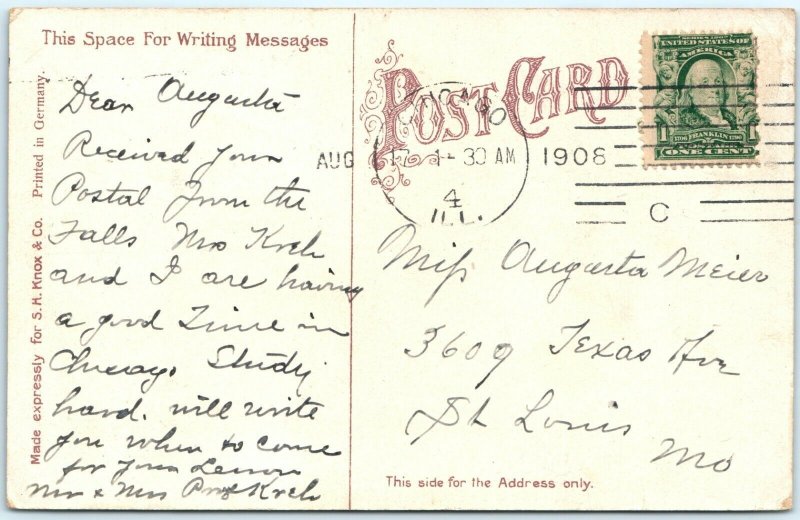 This Space For Writing Messages
Dear Augusta
Received your
Postal from the
Falls Mrs Kreh
and I are having
a good Time in
Chicago. Study
hard. will write
you when to come
for your Lesson
Mr & Mrs Prof Kreh
Made expressly for S.H. Knox & Co. Printed in Germany.
POST CARD
CHICAGO
AUG 17 1-30 AM 1908
4
ILL.
C
SERIES 1902
UNITED STATES OF
AMERICA
1 1706 FRANKLIN 1790 1
POSTAGE
ONE CENT
Miss Augusta Meier
3609 Texas Ave
St Louis
Mo
This side for the Address only.